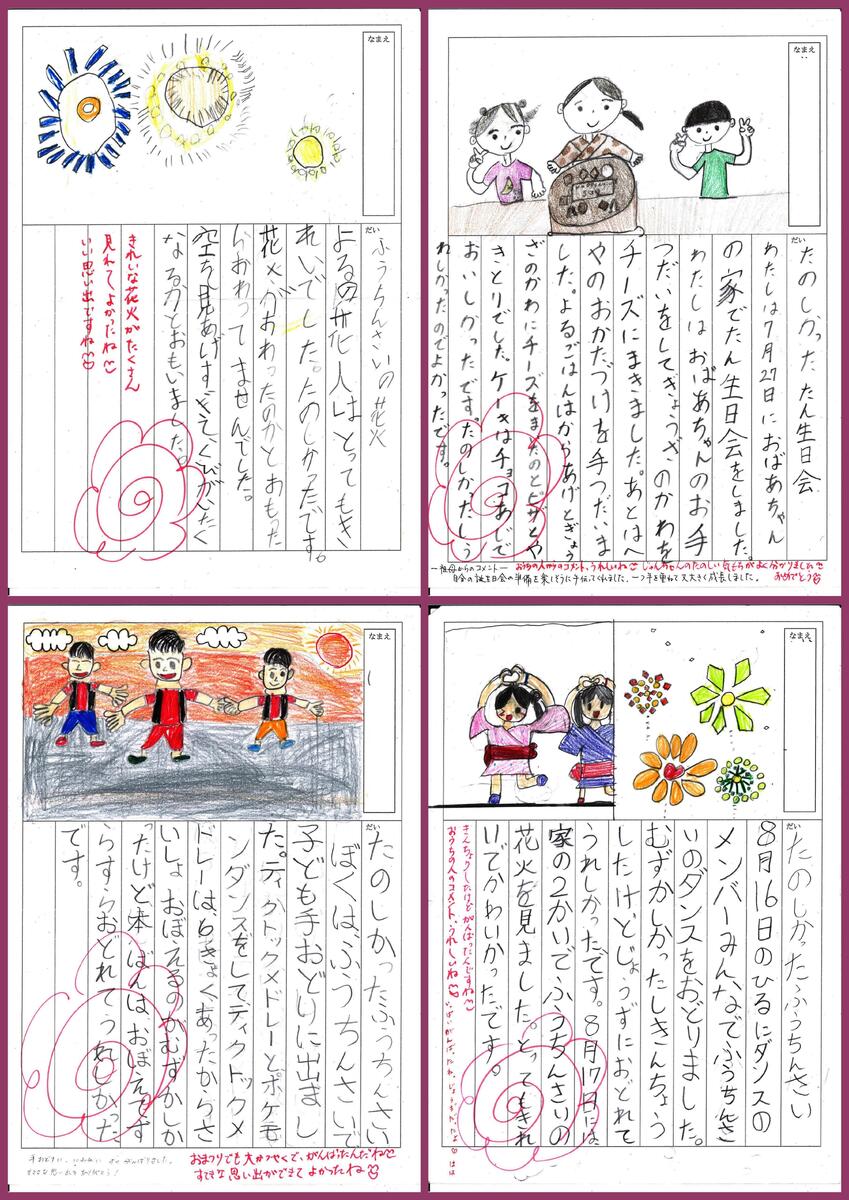 なまえ
だい
ふうちんさいの花火
よるの花火は、とってもき
れいでした。たのしかったです。
花火がおわったのかとおもった
らおわってませんでした。
空を見あげすぎてくびがいたく
なるかとおもいました。
きれいな花火がたくさん
見れてよかったね
いい思い出ですね
なまえ
だい
たのしかったたん生日会
わたしは7月27日におばあちゃん
の家でたん生日会をしました。
わたしはおばあちゃんのお手
つだいをしてぎょうざのかわを
チーズにまきました。あとはへ
やのおかたづけを手つだいま
した。よるごはんはからあげとぎょう
ざのかわにチーズをまいたのとピザとや
きとりでした。ケーキはチョコあじで
おいしかったです。たのしかったしう
れしかったのでよかったです。
―祖母からのコメント―
自分の誕生日会の準備を楽しそうに手伝ってくれました。一つ年を重ねて又大きく成長しました。
おうちの人からのコメント、うれしいね
じゅんちゃんのたのしい気もちがよく分かりました
おめでとう
なまえ
だい
たのしかったふうちんさい
ぼくは、ふうちんさいで
子ども手おどりに出まし
た。ティクトックメドレーとポケモ
ンダンスをしてティクトックメ
ドレーは、6きょくあったからさ
いしょおぼえるのがむずかしか
ったけど本ばんは、おぼえてす
らすらおどれてうれしかった
です。
おまつりでも大かつやくで、がんばったんだね
すてきな思い出ができてよかったね
なまえ
だい
たのしかったふうちんさい
8月16日のひるにダンスの
メンバーみんなでふうちんさ
いのダンスをおどりました。
むずかしかったしきんちょう
したけどじょうずにおどれて
うれしかったです。8月17日には
家の2かいでふうちんさいの
花火を見ました。とってもきれ
いでかわいかったです。
きんちょうしたけどがんばったんですね
おうちの人のコメント、うれしいね
いっぱいがんばったね。じょうずだったよ はは